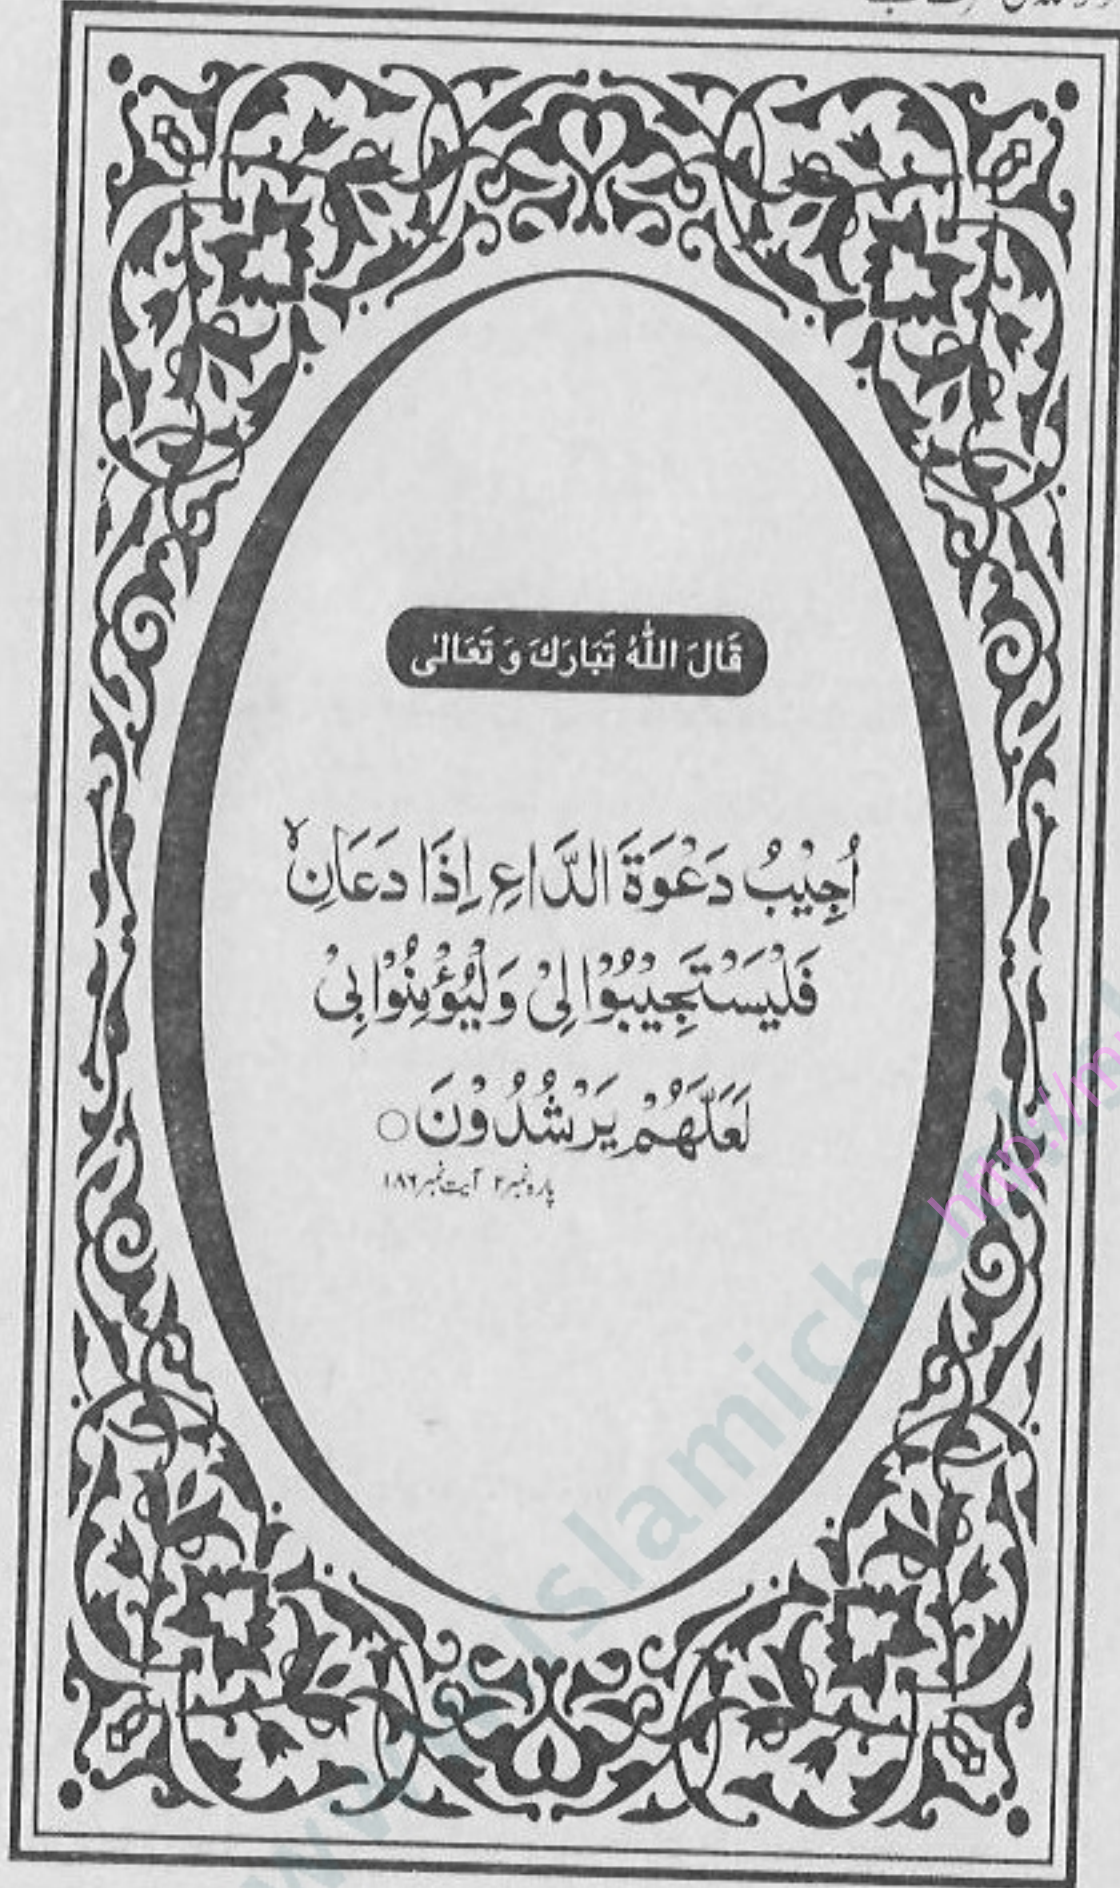 قَالَ اللّٰهُ تَبَارَكَ وَ تَعَالٰی
اُجِیْبُ دَعْوَةَ الدَّاعِ اِذَا دَعَانِ ۙ
فَلْیَسْتَجِیْبُوْا لِیْ وَلْیُؤْمِنُوْا بِیْ
لَعَلَّهُمْ یَرْشُدُوْنَ ○
پارہ نمبر ۲ آیت نمبر ۱۸۶
http://m